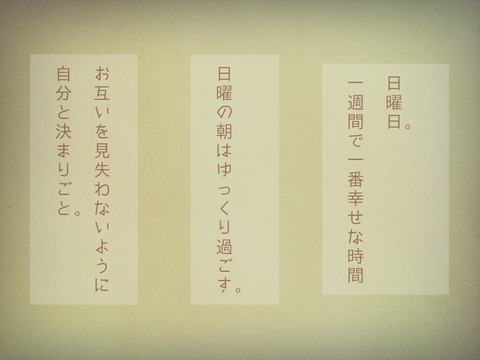 日曜日。
一週間で一番幸せな時間
日曜の朝はゆっくり過ごす。
お互いを見失わないように
自分と決まりごと。